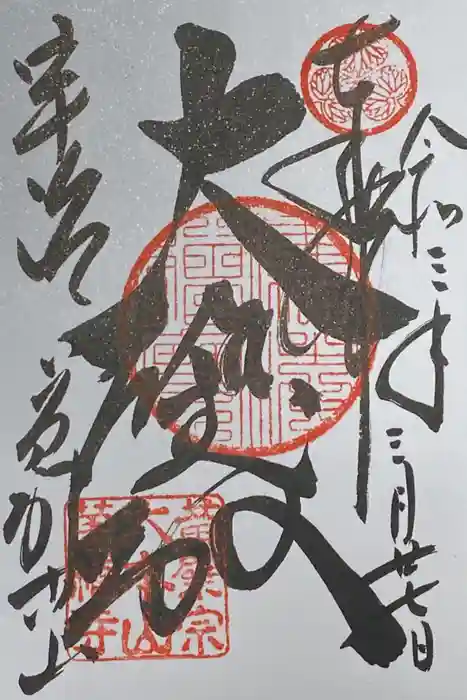 奉拝
令和三年三月廿七日
大雄殿
宇治 黄檗山
黄檗宗
大本山
萬福寺